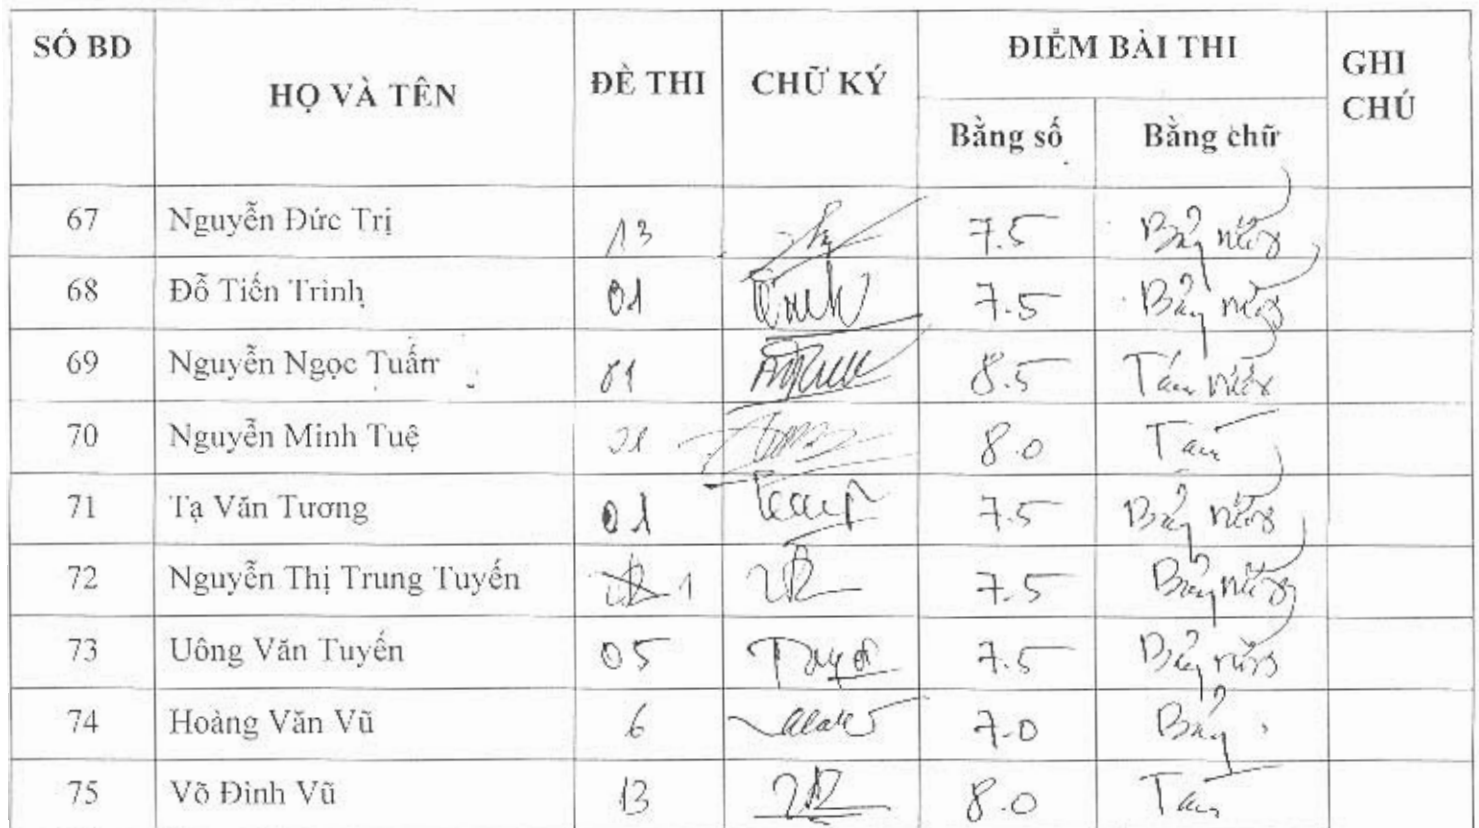 SỐ BD HỌ VÀ TÊN ĐỀ THI CHỮ KÝ ĐIỂM BÀI THI GHI CHÚ
Bằng số Bằng chữ
67 Nguyễn Đức Trị 13 7.5 Bảy rưỡi
68 Đỗ Tiến Trinh 01 7.5 Bảy rưỡi
69 Nguyễn Ngọc Tuấn 01 8.5 Tám rưỡi
70 Nguyễn Minh Tuệ 8.0 Tám
71 Tạ Văn Tương 01 7.5 Bảy rưỡi
72 Nguyễn Thị Trung Tuyến 1 7.5 Bảy rưỡi
73 Uông Văn Tuyến 05 7.5 Bảy rưỡi
74 Hoàng Văn Vũ 6 7.0 Bảy
75 Võ Đình Vũ 13 8.0 Tám